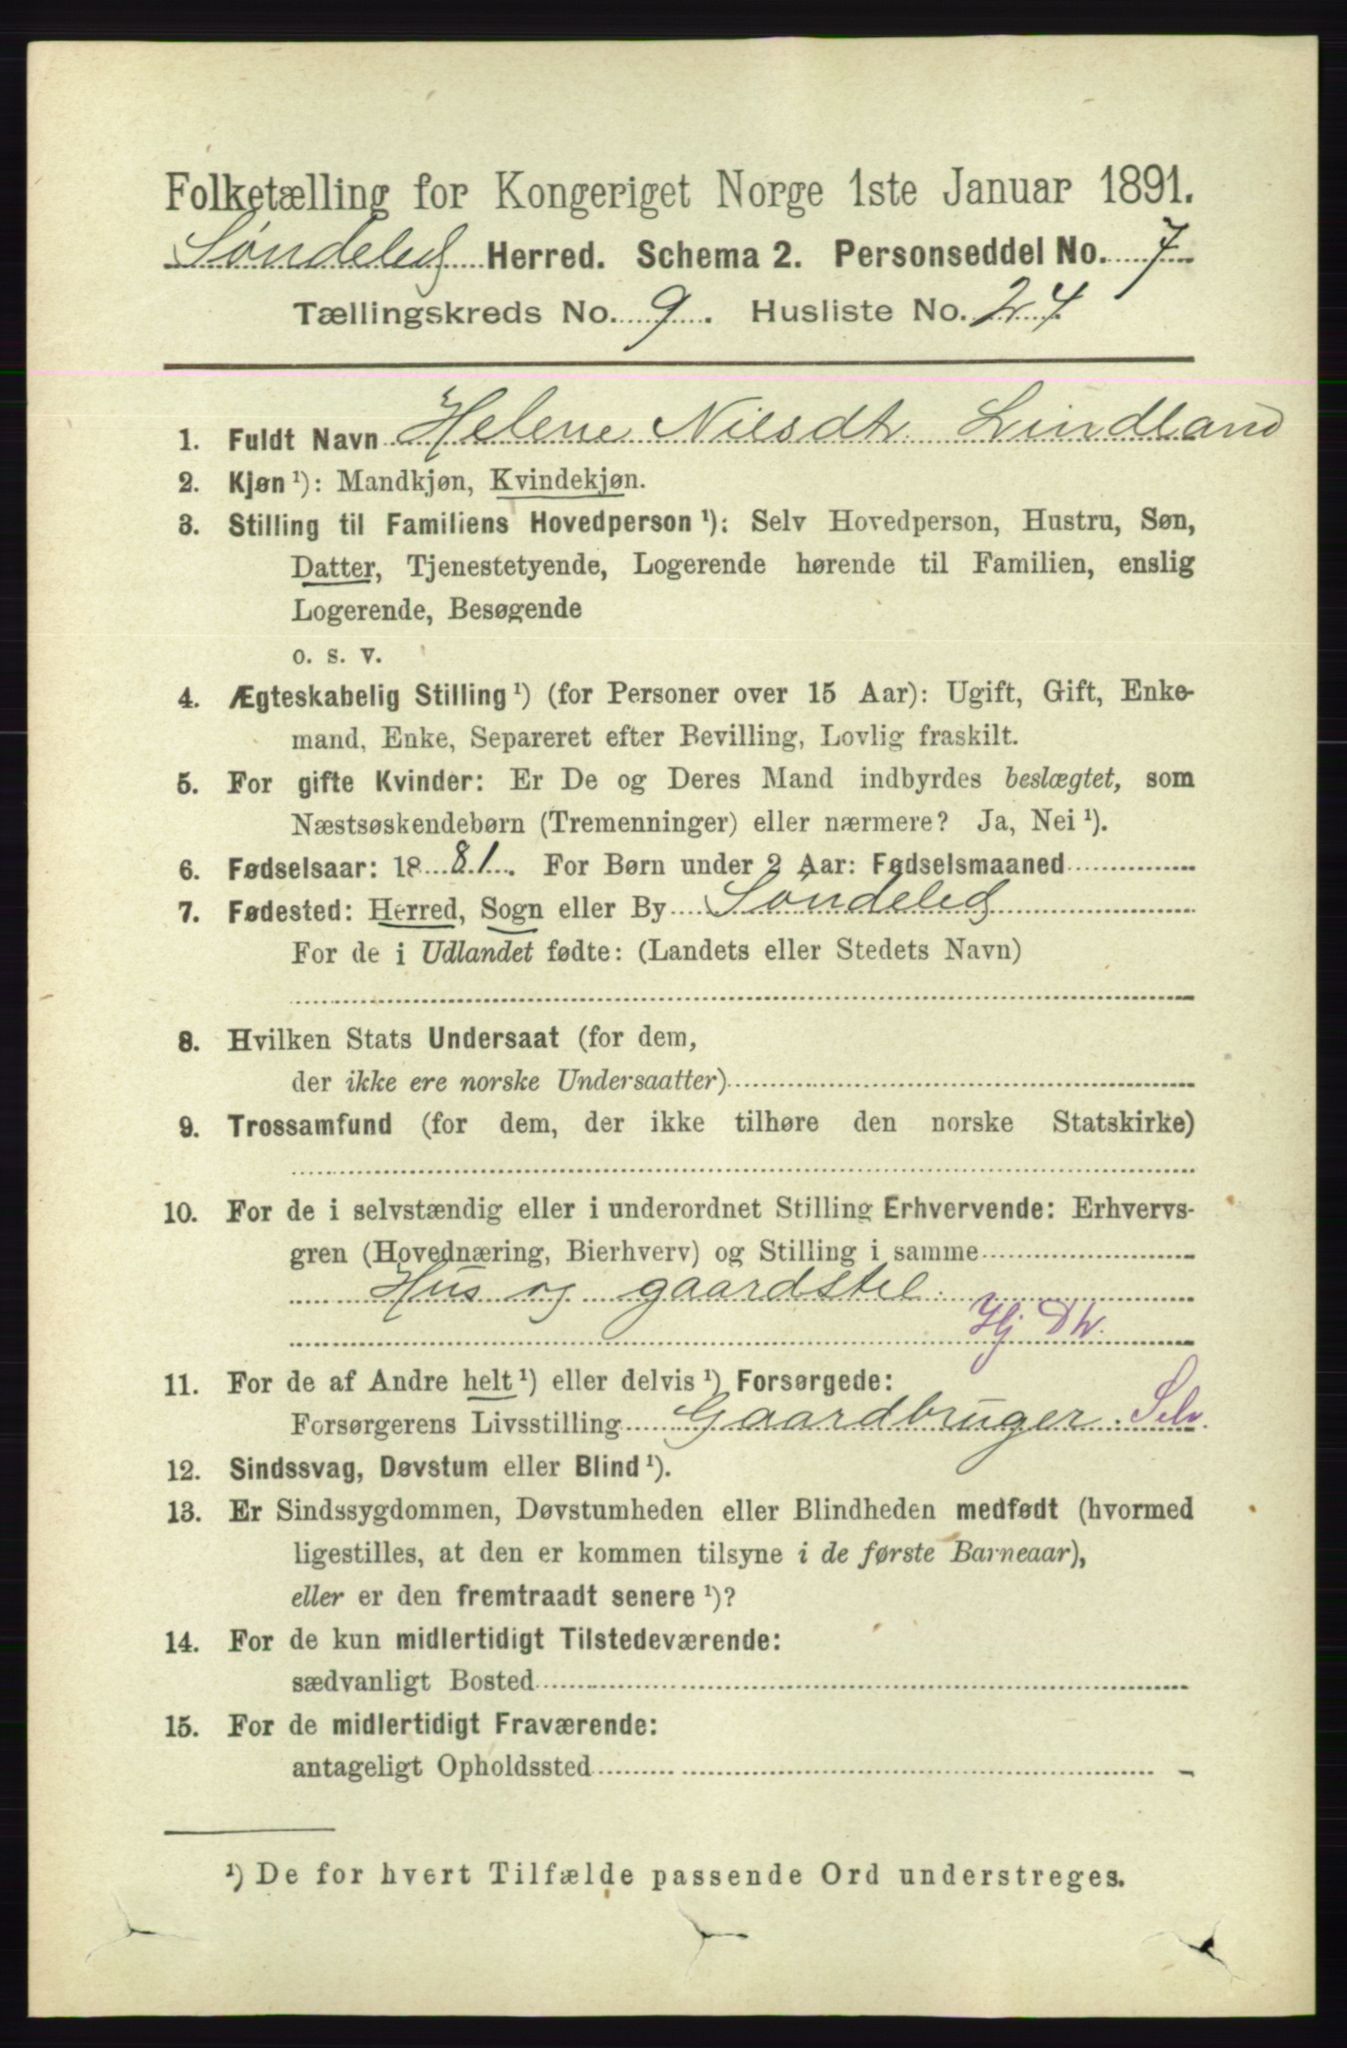 Folketælling for Kongeriget Norge 1ste Januar 1891.
Søndeled Herred. Schema 2. Personseddel No. 7
Tællingskreds No. 9. Husliste No. 24
1. Fuldt Navn Helene Nilsdtr. Lindland
2. Kjøn ¹): Mandkjøn, Kvindekjøn.
3. Stilling til Familiens Hovedperson ¹): Selv Hovedperson, Hustru, Søn,
Datter, Tjenestetyende, Logerende hørende til Familien, enslig
Logerende, Besøgende
o. s. v.
4. Ægteskabelig Stilling ¹) (for Personer over 15 Aar): Ugift, Gift, Enke-
mand, Enke, Separeret efter Bevilling, Lovlig fraskilt.
5. For gifte Kvinder: Er De og Deres Mand indbyrdes beslægtet, som
Næstsøskendebørn (Tremenninger) eller nærmere? Ja, Nei ¹).
6. Fødselsaar: 1881. For Børn under 2 Aar: Fødselsmaaned
7. Fødested: Herred, Sogn eller By Søndeled
For de i Udlandet fødte: (Landets eller Stedets Navn)
8. Hvilken Stats Undersaat (for dem,
der ikke ere norske Undersaatter)
9. Trossamfund (for dem, der ikke tilhøre den norske Statskirke)
10. For de i selvstændig eller i underordnet Stilling Erhvervende: Erhvervs-
gren (Hovednæring, Bierhverv) og Stilling i samme
Hus og gaardstel.
Hj Dtr.
11. For de af Andre helt ¹) eller delvis ¹) Forsørgede:
Forsørgerens Livsstilling Gaardbruger. Selv.
12. Sindssvag, Døvstum eller Blind ¹).
13. Er Sindssygdommen, Døvstumheden eller Blindheden medfødt (hvormed
ligestilles, at den er kommen tilsyne i de første Barneaar),
eller er den fremtraadt senere ¹)?
14. For de kun midlertidigt Tilstedeværende:
sædvanligt Bosted
15. For de midlertidigt Fraværende:
antageligt Opholdssted
¹) De for hvert Tilfælde passende Ord understreges.